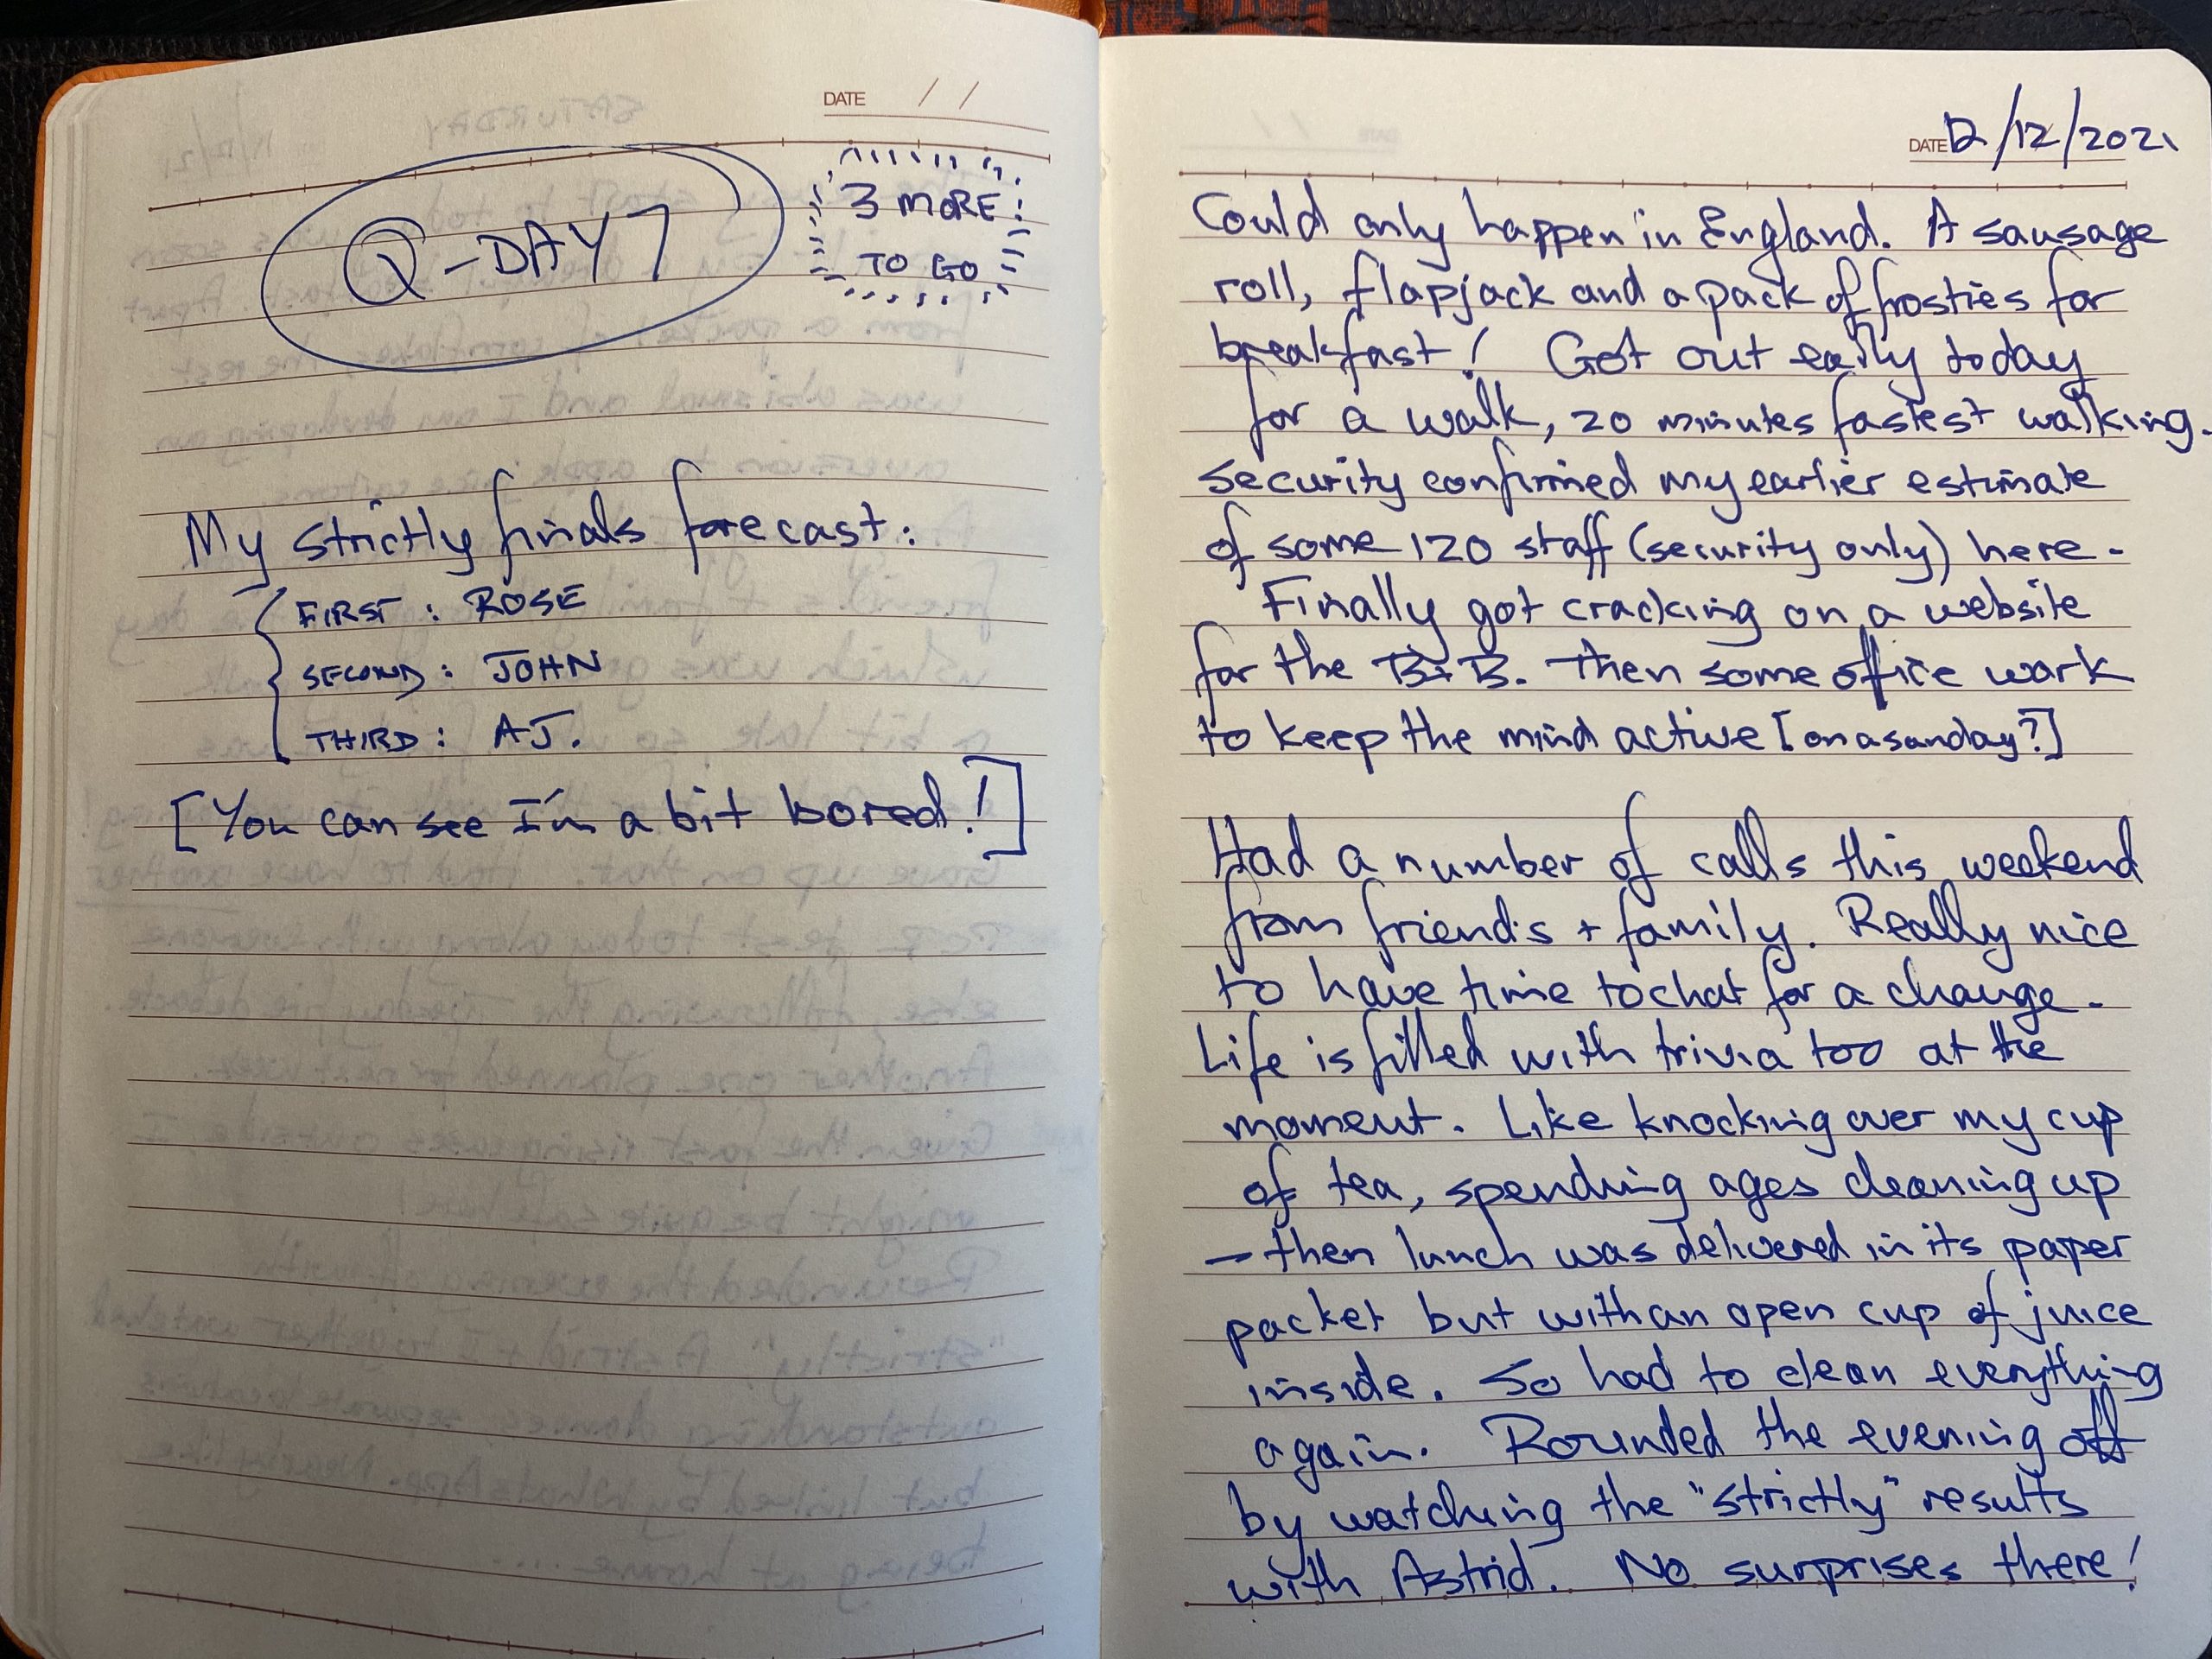 DATE / /
Q-DAY 7
3 MORE!
TO GO
My strictly finals forecast:
FIRST: ROSE
SECOND: JOHN
THIRD: AJ.
[You can see I'm a bit bored!]
DATE 12/12/2021
Could only happen in England. A sausage
roll, flapjack and a pack of frosties for
breakfast! Got out early today
for a walk, 20 minutes fastest walking.
Security confirmed my earlier estimate
of some 120 staff (security only) here.
Finally got cracking on a website
for the B+B. Then some office work
to keep the mind active [on a sunday?]
Had a number of calls this weekend
from friends + family. Really nice
to have time to chat for a change.
Life is filled with trivia too at the
moment. Like knocking over my cup
of tea, spending ages cleaning up
- then lunch was delivered in its paper
packet but with an open cup of juice
inside. So had to clean everything
again. Rounded the evening off
by watching the "strictly" results
with Astrid. No surprises there!